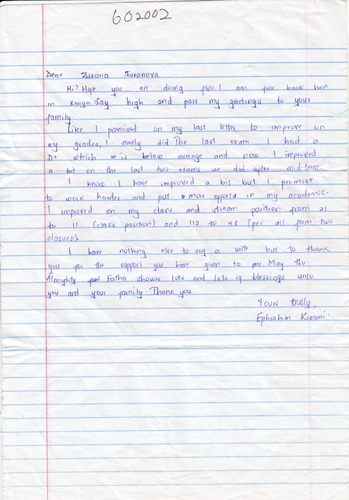 602002
Dear Zuzana
Hi! Hope you are doing fine I am fine back here
in Kenya. Say high and pass my greetings to your
family
Like I promised on my last letter to improve on
my grades, I surely did. The last exam I had a
D+ which is below average and now I improved
a bit on the last two exams we did after mid-term
I know I have improved a bit but I promise
to work harder and put more in my academic.
I improved on my class and stream position from 21
to 11 (class position) and 112 to 48 (per all form two
classes).
I have nothing else to say a but to thank
you for the support you have given to me May the
Almighty Father shower lots and lots of blessings unto
you and your family Thank you
Yours
Ephraham